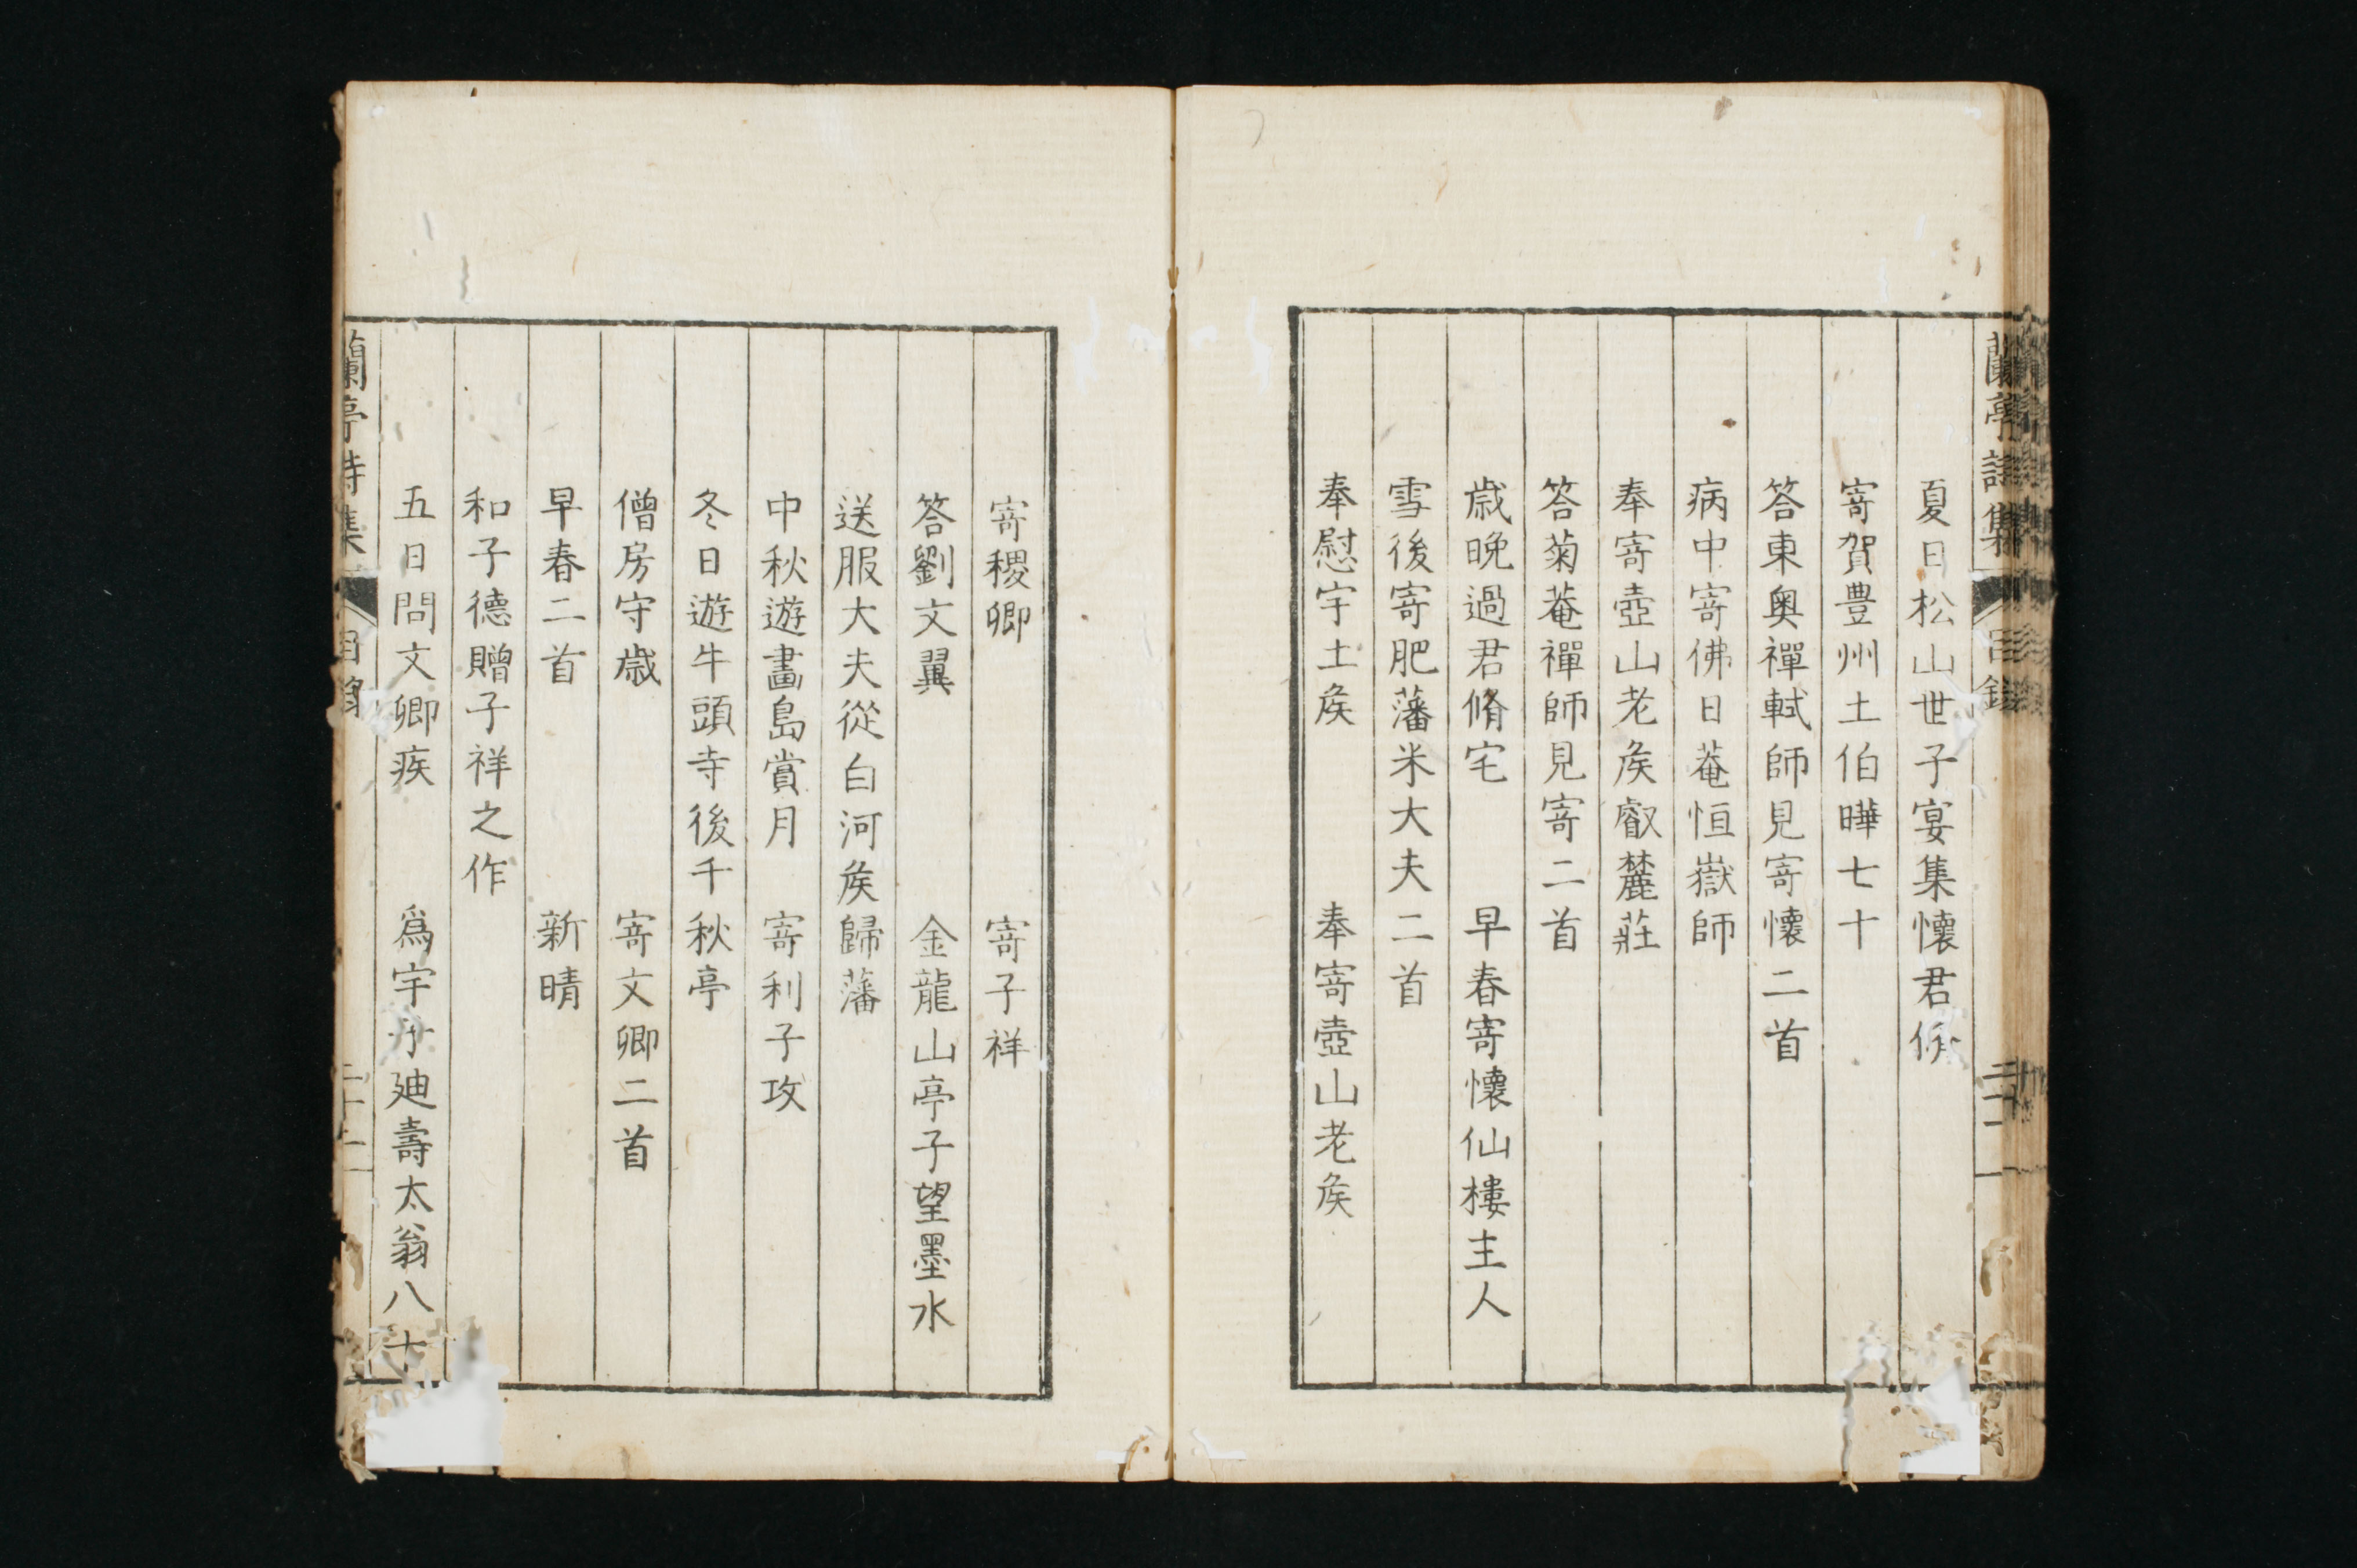 蘭亭詩集 目録
夏日松山世子宴集懷君脩
寄賀豊州土伯曄七十
答東奥禪軾師見寄懷二首
病中寄佛日菴恒嶽師
奉寄壺山老矦叡麓莊
答菊菴禪師見寄二首
歳晩過君脩宅 早春寄懷仙樓主人
雪後寄肥藩米大夫二首
奉慰宇土矦 奉寄壺山老矦
寄稷卿 寄子祥
答劉文翼 金龍山亭子望墨水
送服大夫從白河矦歸藩
中秋遊畵島賞月 寄利子攻
冬日遊牛頭寺後千秋亭
僧房守歳 寄文卿二首
早春二首 新晴
和子德贈子祥之作
五日問文卿疾 爲宇廸壽太翁八十
蘭亭詩集 目